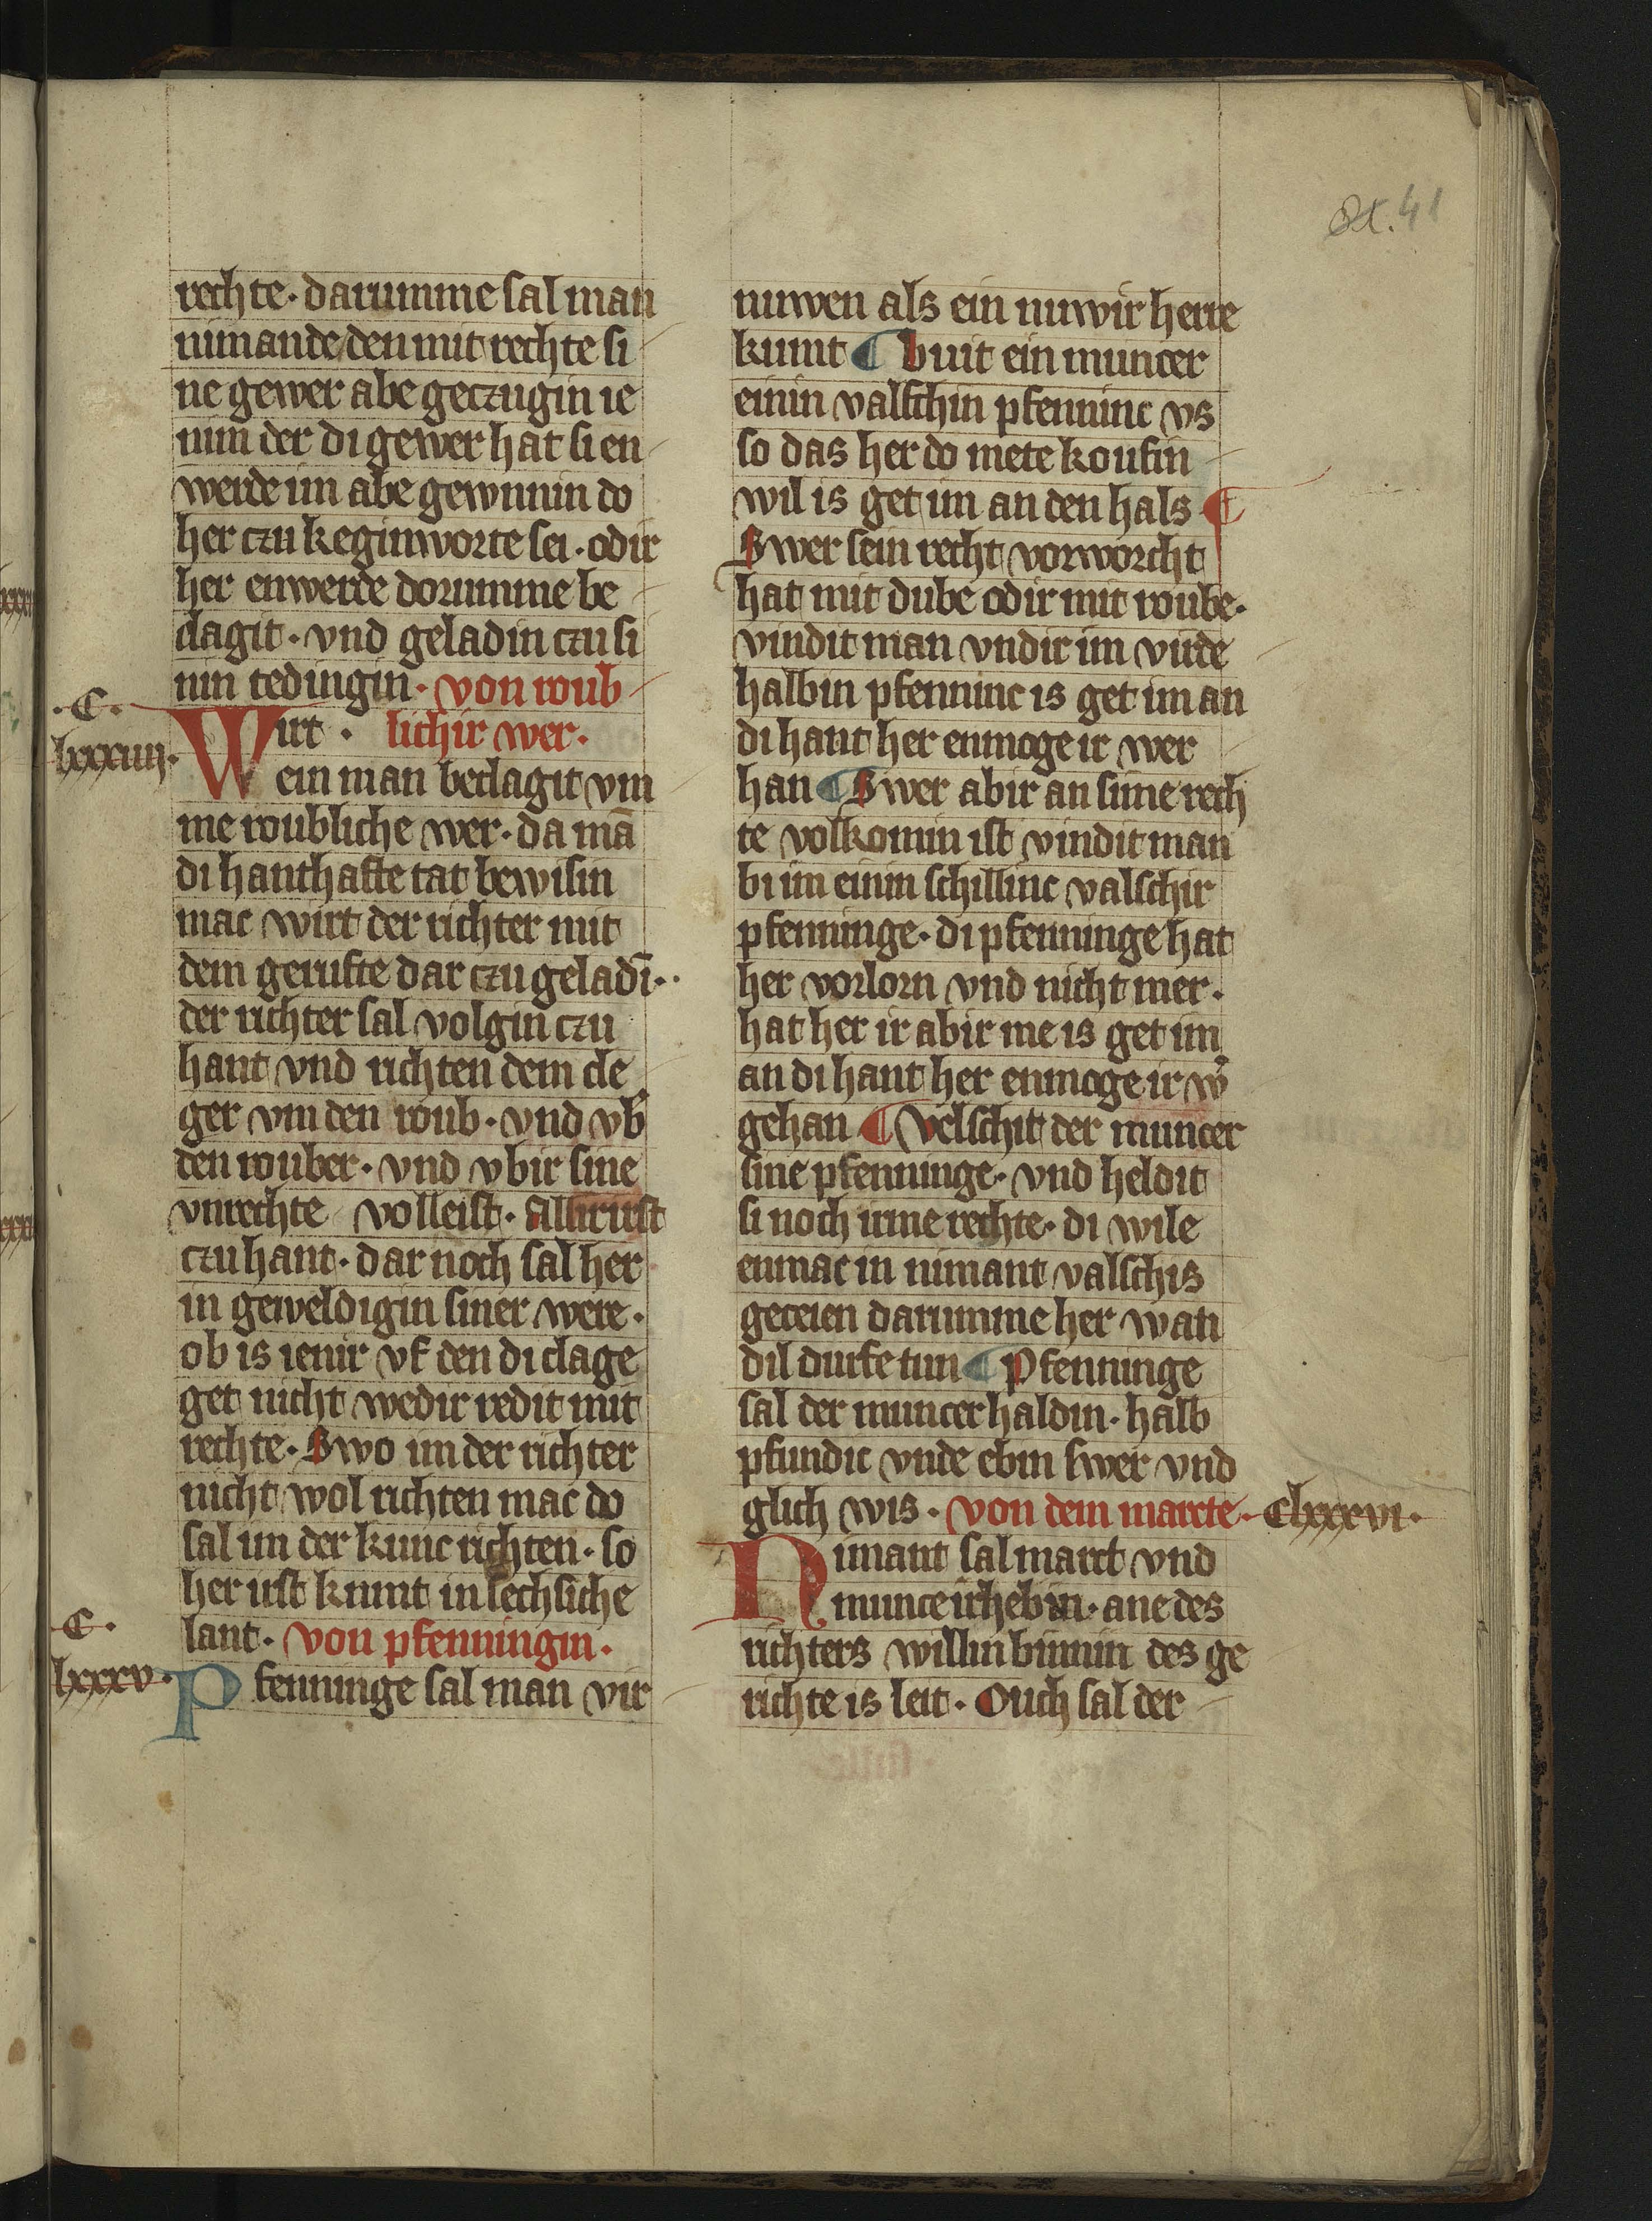 41
rechte · darumme sal man
nimande den mit rechte si
ne gewer abe geczugin ie
nim der di gewer hat si en
werde im abe gewnnin do
her czu keginworte sei · odir
her enwerde dorumme be
clagit · vnd geladin czu si
nin tedingin · von roub
lichir wer ·
· C · lxxxiiii ·
Wirt ·
ein man beclagit vm
me roubliche wer · da mā
di hanthafte tat bewisin
mac wirt der richter mit
dem gerufte dar czu geladī ·
der richter sal volgin czu
hant vnd richten dem cle
ger vm den roub · vnd vb̾
den rouber · vnd vbir sine
vnrechte volleist · Allirirst
czu hant · dar noch sal her
in geweldigin siner were ·
ob is ienir vf den di clage
get nicht wedir redit mit
rechte · Swo im der richter
nicht wol richten mac do
sal im der kunc richten · so
her irst kumt in sechsiche
lant · von pfenningin ·
C · lxxxv ·
Pfenninge sal man vir
nuwen als ein nuwir herre
kumt ¶ buit ein muncer
einin valschin pfenninc vs
so das her do mete koufin
wil is get im an den hals ¶
Swer sein recht vorworcht
hat mit dube odir mit roube ·
vindit man vndir im virde
halbin pfenninc is get im an
di hant her enmoge ir wer
han ¶ Swer abir an sime rech
te volkomin ist vindit man
bi im einin schillinc valschir
pfenninge · di pfenninge hat
her vorlorn vnd nicht mer ·
hat her ir abir me is get im
an di hant her enmoge ir w̾
gehan ¶ Velschit der muncer
sine pfenninge · vnd heldit
si noch irme rechte · di wile
enmac in nimant valschis
geceien darumme her wan
dil durfe tun ¶ Pfenninge
sal der muncer haldin · halb
pfundic vnde ebin swer vnd
glich wis · von dem marcte · Clxxxvi ·
Nimant sal marct vnd
munce irhebin · ane des
richters willin binnin des ge
richte is leit · Ouch sal der